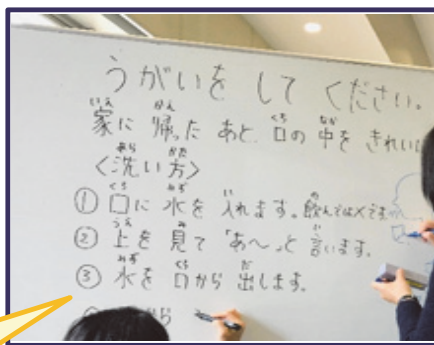 うがいを して ください。
家に 帰った あと、口の 中を きれいに
<洗い方>
① 口に 水を 入れます。飲んでは×です
② 上を 見て 「あ〜」と 言います。
③ 水を 口から 出します。
から